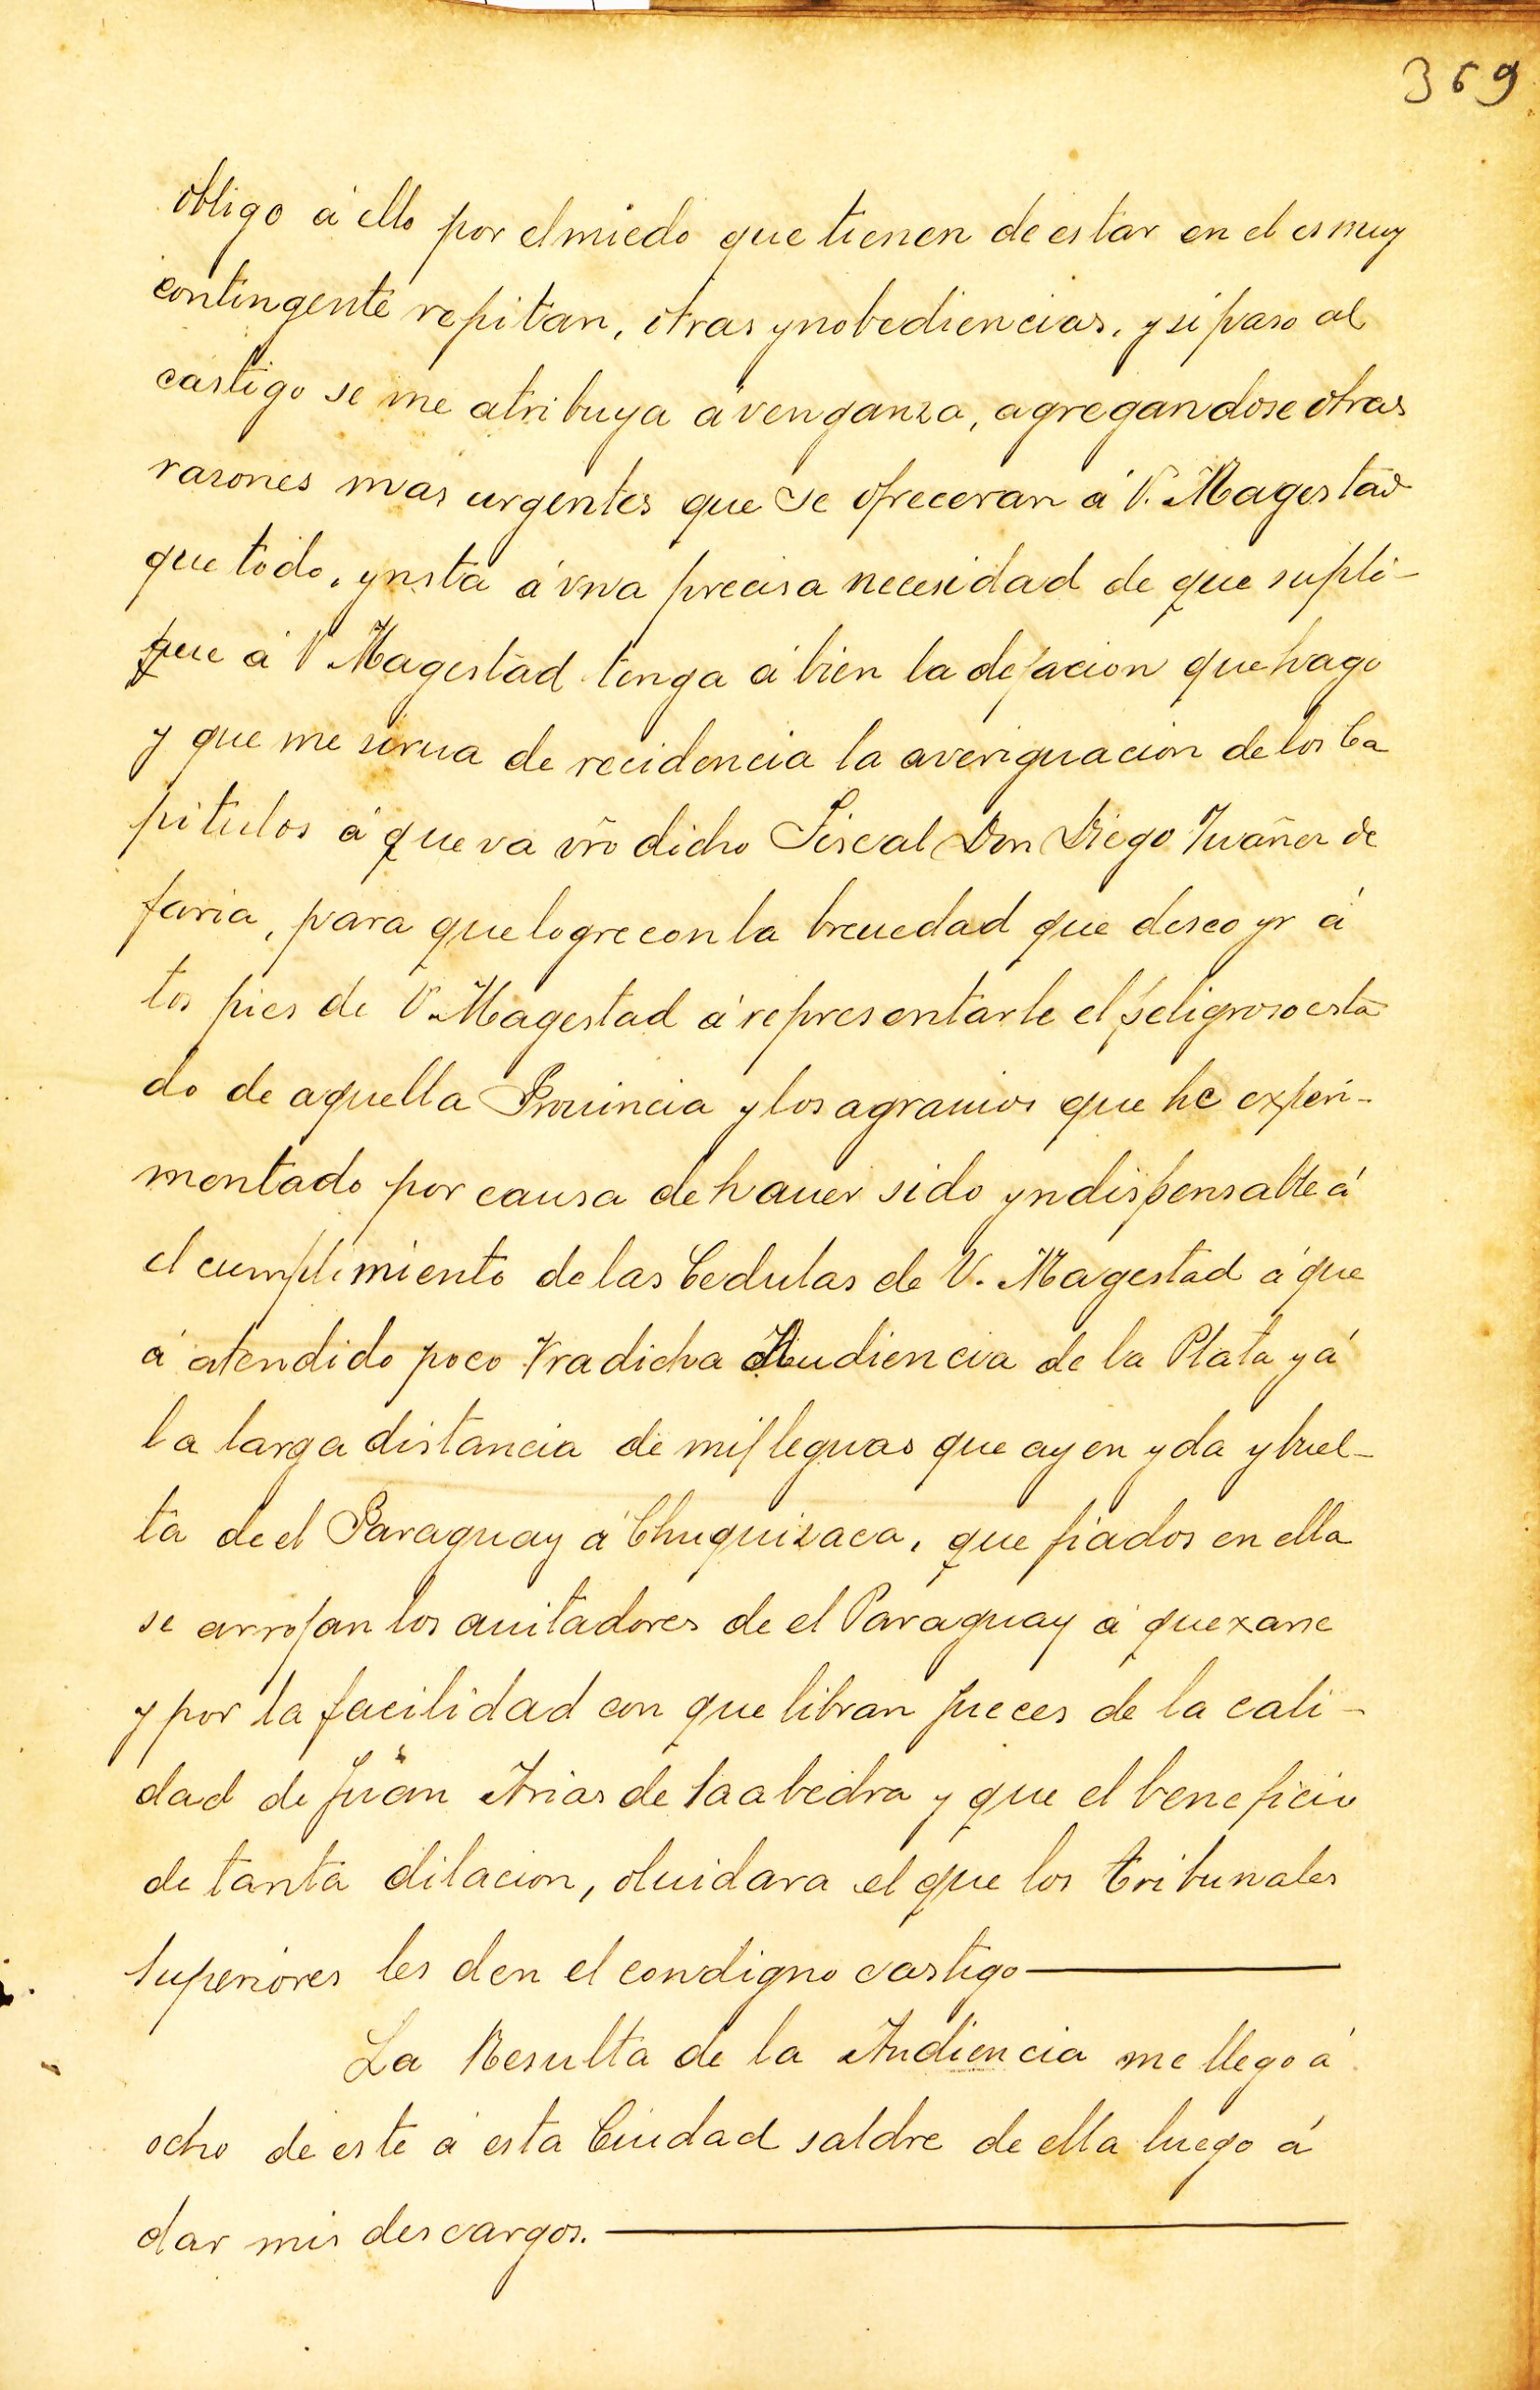 369
obligo á ello por el miedo que tienen de estar en el es muy
contingente repitan, otras ynobediencias, y si paso al
castigo se me atribuya á venganza, agregandose otras
rasones mas urgentes que se ofreceran á V. Magestad
que todo, ynsta á vna precisa necesidad de que supli-
que á V Magestad tenga á bien la dejacion que hago
y que me sirua de recidencia la averiguacion de los Ca
pitulos á que va vrõ dicho Fiscal Don Diego Yvañez de
faria, para que logre con la breuedad que deseo yr á
los pies de V. Magestad á representarle el peligroso esta
do de aquella Prouincia y los agrauios que he experi-
mentado por causa de hauer sido yndispensable á
el cumplimiento de las Cedulas de V. Magestad á que
á atendido poco Vra dicha Audiencia de la Plata y á
la larga distancia de mil leguas que ay en yda y buel-
ta de el Paraguay á Chuquisaca, que fiados en ella
se arrojan los auitadores de el Paraguay á quexarse
y por la facilidad con que libran Jueces de la cali-
dad de Juan Arias de Saabedra y que el beneficio
de tanta dilacion, oluidara el que los tribunales
Superiores les den el condigno castigo
La Resulta de la Audiencia me llego á
ocho de este á esta Ciudad saldre de ella luego á
dar mis descargos.